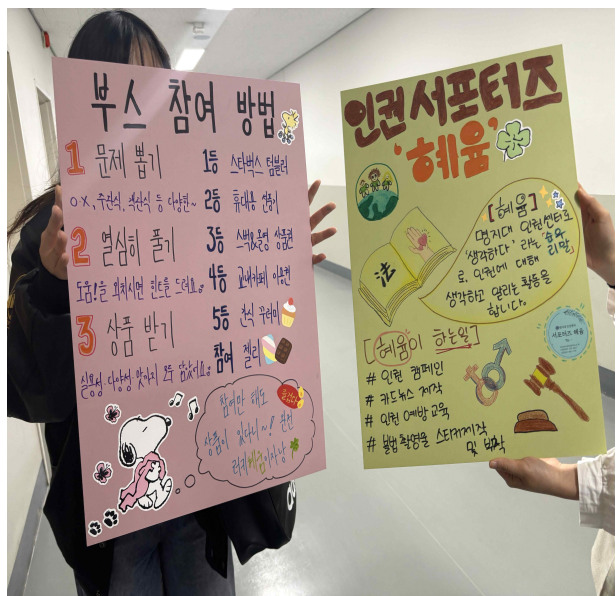 부스 참여 방법
1 문제 뽑기
O·X, 주관식, 객관식 등 다양한~
2 열심히 풀기
도움!을 외치시면 힌트를 드려요.
3 상품 받기
실용성 다양성 맛까지 모두 담았어요.
1등 스타벅스 텀블러
2등 휴대용 선풍기
3등 스벅&올영 상품권
4등 교내카페 이용권
5등 간식 꾸러미
참여 젤리
참여만 해도
상품이 있다니~! 완전
럭키혜윰이자낭
인권 서포터즈
'혜윰'
[혜윰]
명지대 인권센터로
'생각하다' 라는 '순우리말'
로, 인권에 대해
생각하고 알리는 활동을
합니다.
法
서포터즈 혜윰
[혜윰이 하는일]
# 인권 캠페인
# 카드뉴스 제작
# 인권 예방 교육
# 불법 촬영물 스티커제작
및 부착